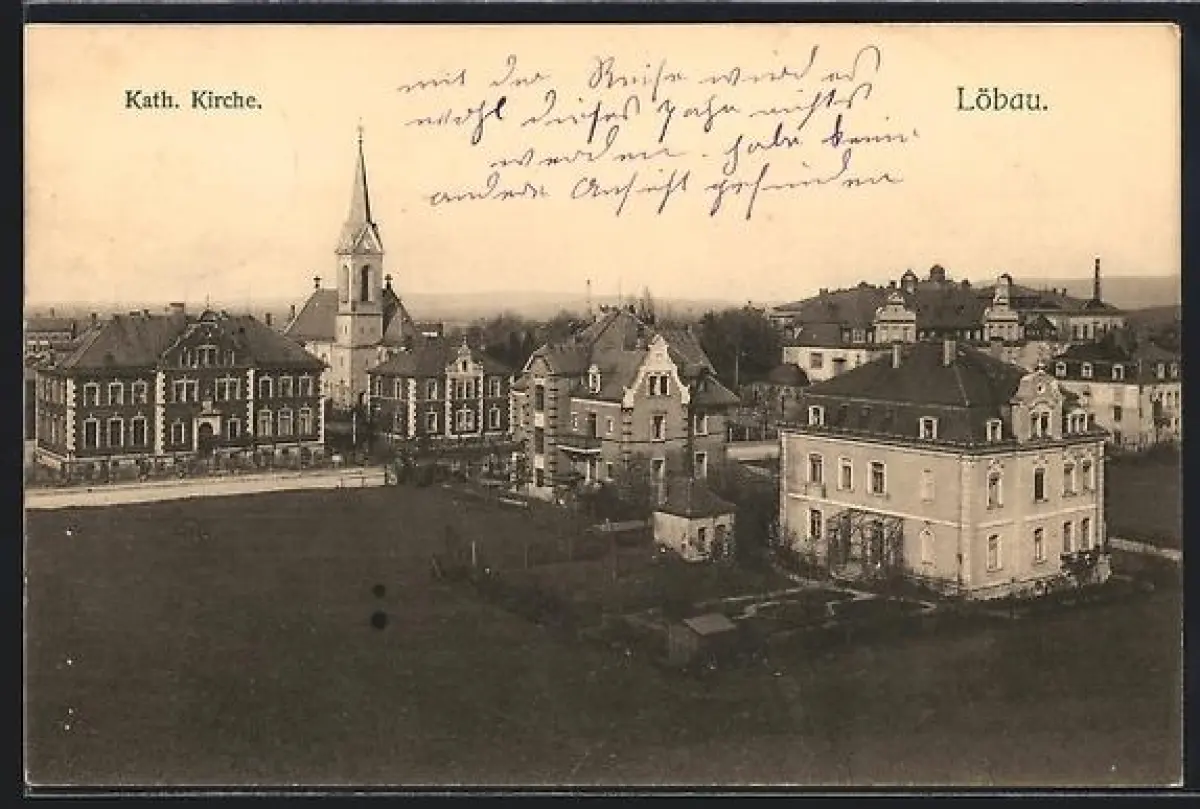 Kath. Kirche.
Löbau.
mit der Reise wird es
wohl dieses Jahr nichts
werden. habe keine
andere Ansicht gefunden